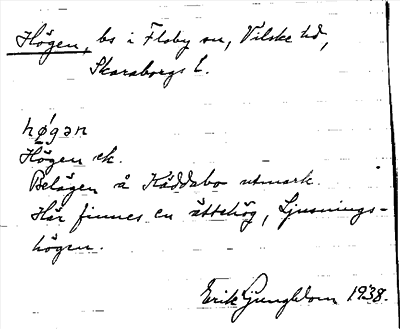 Högen, bs i Floby sn, Vilske hd,
Skaraborgs l.
hø̀gən
Högen ek.
Belägen å Käddabo utmark.
Här finnes en ättehög, Ljusnings-
högen.
Erik Ljungblom 1938.